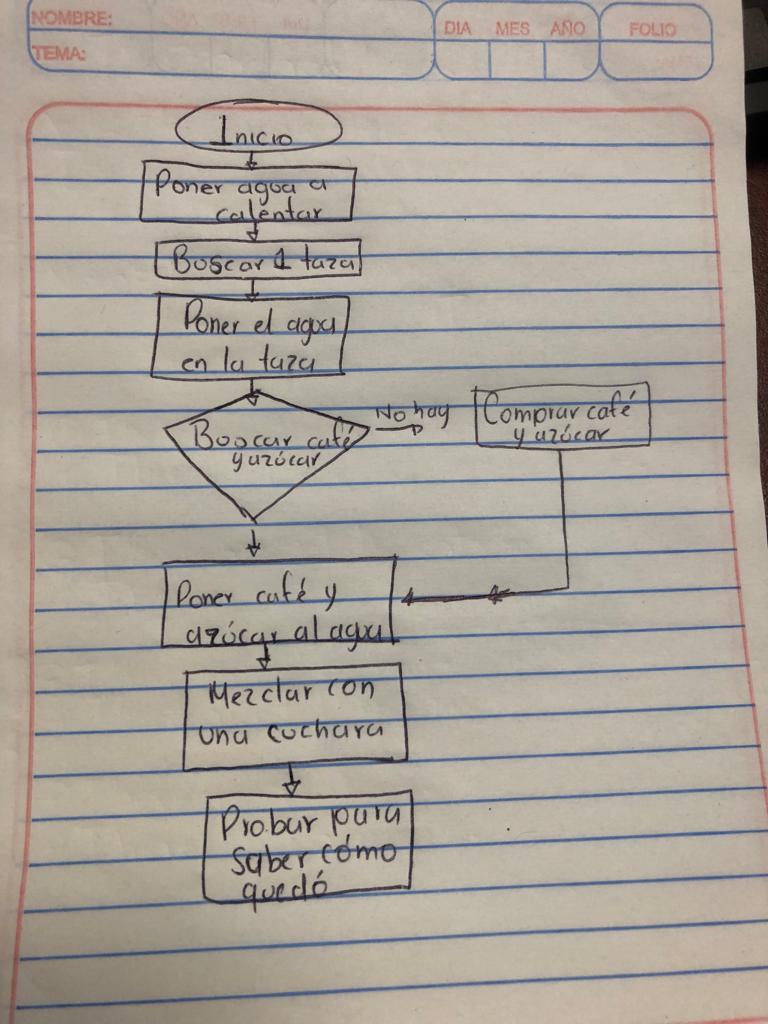 NOMBRE:
DIA MES AÑO FOLIO
TEMA:
Inicio
Poner agua a
calentar
Buscar 1 taza
Poner el agua
en la taza
No hay
Buscar café
y azúcar
Comprar café
y azúcar
Poner café y
azúcar al agua
Mezclar con
una cuchara
Probar para
saber cómo
quedó